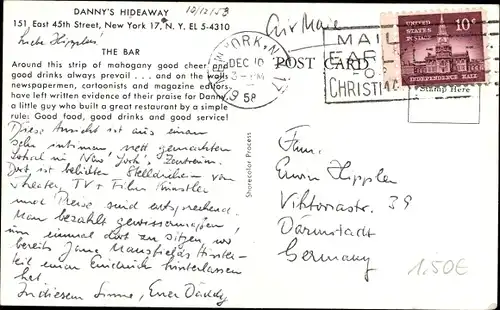 DANNY'S HIDEAWAY
10/12/53
151 East 45th Street, New York 17, N. Y. EL 5-4310
Liebe Hipplers!
Air Mail
THE BAR
Around this strip of mahogany good cheer and
good drinks always prevail . . . and on the walls
newspapermen, cartoonists and magazine editors
have left written evidence of their praise for Danny,
a little guy who built a great restaurant by a simple
rule: Good food, good drinks and good service!
Diese Ansicht ist aus einem
sehr intimen, nett gemachten
Lokal in New York's Zentrum.
Dort ist beliebtes Stelldichein von
Theater, TV + Film Künstler
und Preise sind entsprechend.
Man bezahlt gewissermaßen,
um einmal dort zu sitzen, wo
bereits Jane Mansfields Hinter-
teil einen Eindruck hinterlassen
hat.
In diesem Sinne, Euer Daddy
Sharecolor Process
NEW YORK, N.Y. 17
DEC 10
3-PM
1958
POST CARD
MAIL
EARLY
FOR
CHRISTMAS
UNITED STATES POSTAGE
10¢
INDEPENDENCE HALL
Stamp Here
Fam.
Erwin Hippler
Viktoriastr. 39
Darmstadt
Germany
1,50€